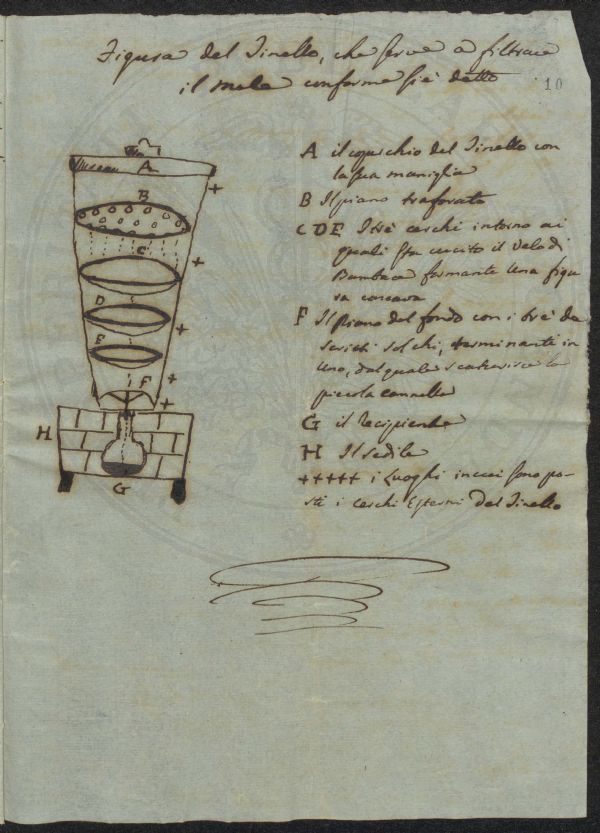 Figura del Tinello, che serve a filtrare
il mele conforme s'è detto
10
A il coperchio del Tinello con
la sua maniglia
B Il piano traforato
C D E I trè cerchi intorno ai
quali sta cucito il velo di
Bambace formante una figu
ra concava
F Il piano del fondo con i trè de
scritti solchi, terminanti in
uno, dal quale scaturisce la
piccola cannella
G il Recipiente
H Il sedile
+++++ i Luoghi in cui sono po-
sti i cerchi esterni del Tinello
A
B
C
D
E
F
H
G